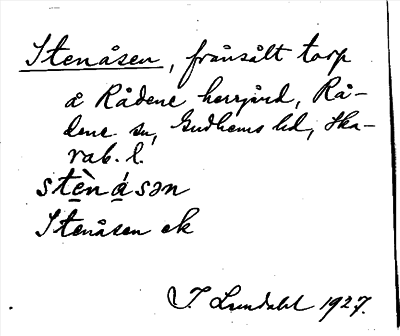 Stenåsen, frånsålt torp
å Rådene herrgård, Rå-
dene sn, Gudhems hd, Ska-
rab. l.
stè̠n á̠sən
Stenåsen ek
J. Lundahl 1927.